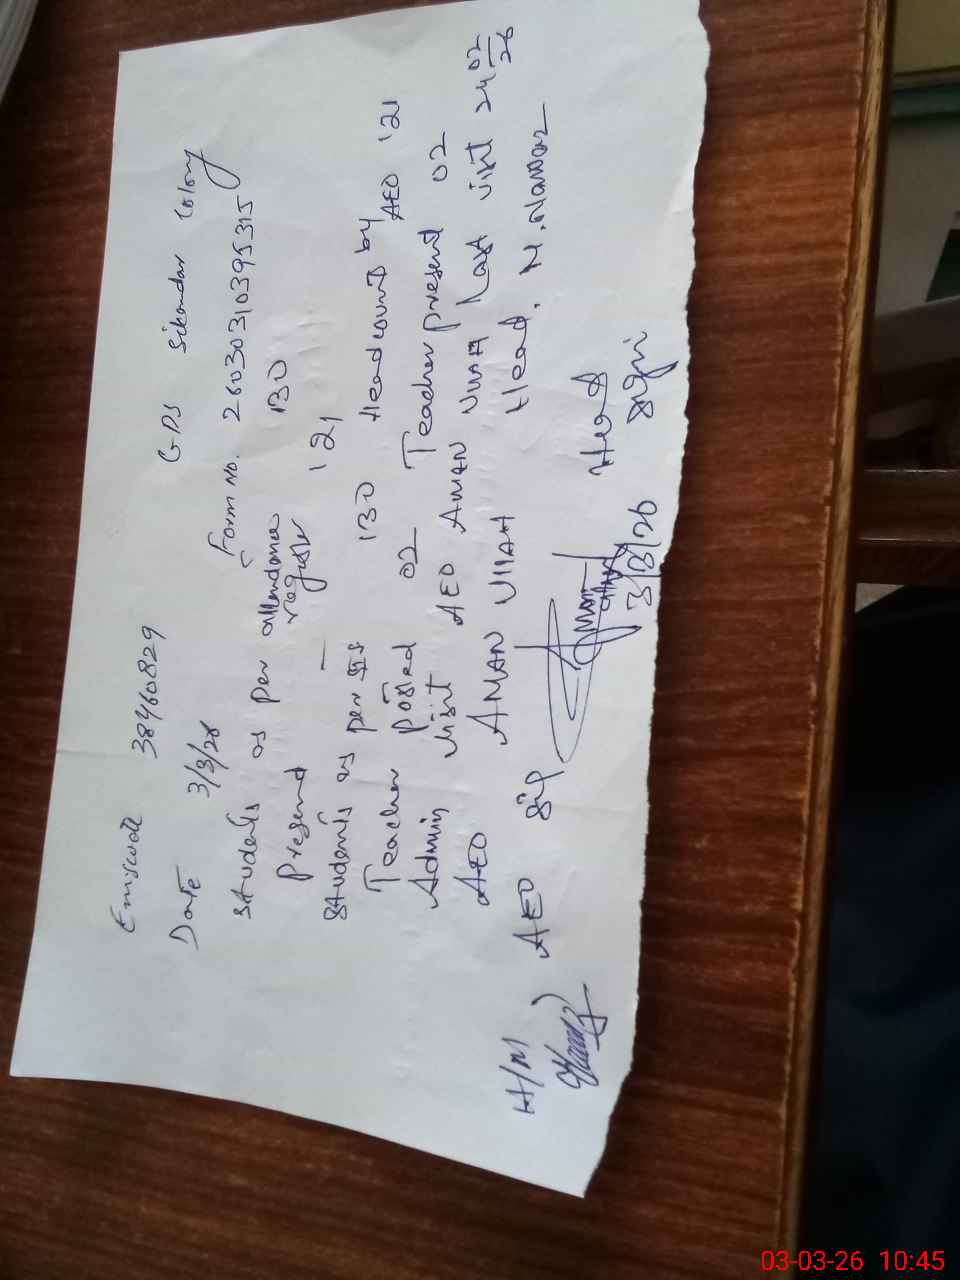 Emiscode 38460829 GPS Sikandar Colony
Date 3/3/26 Form No. 2603031039 5315
Students as per attendance 130
Present register 121
Students as per SIS 130 Headcount by AEO 121
Teacher Posted 02 Teacher present 02
Admin Visit AEO AMAN Ullah Last visit 24 02/26
AEO AMAN Ullah Head. N.
AEO Sig Head Sign
3/3/26
H/M
03-03-26 10:45